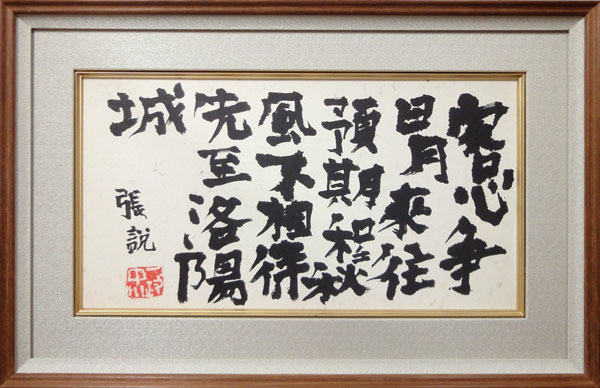 客心争
日月來往
預期程秋
風不相待
先至洛陽
城
張説